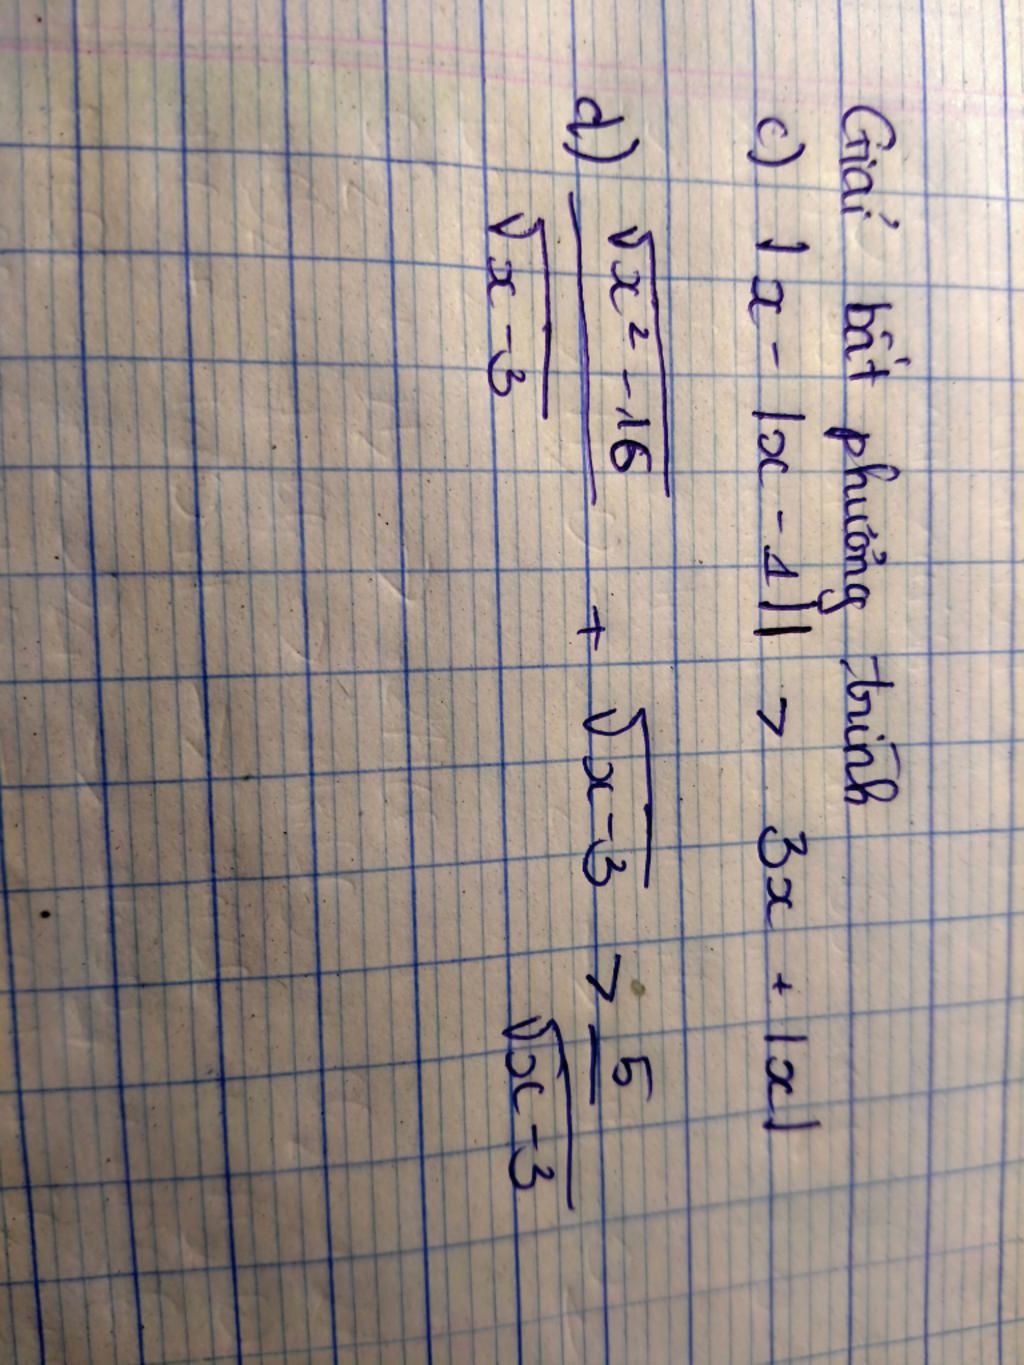 Giải bất phương trình
c) |x - |x - 1|| > 3x + |x|
d) \frac{\sqrt{x² - 16}}{\sqrt{x - 3}} + \sqrt{x - 3} > \frac{5}{\sqrt{x - 3}}